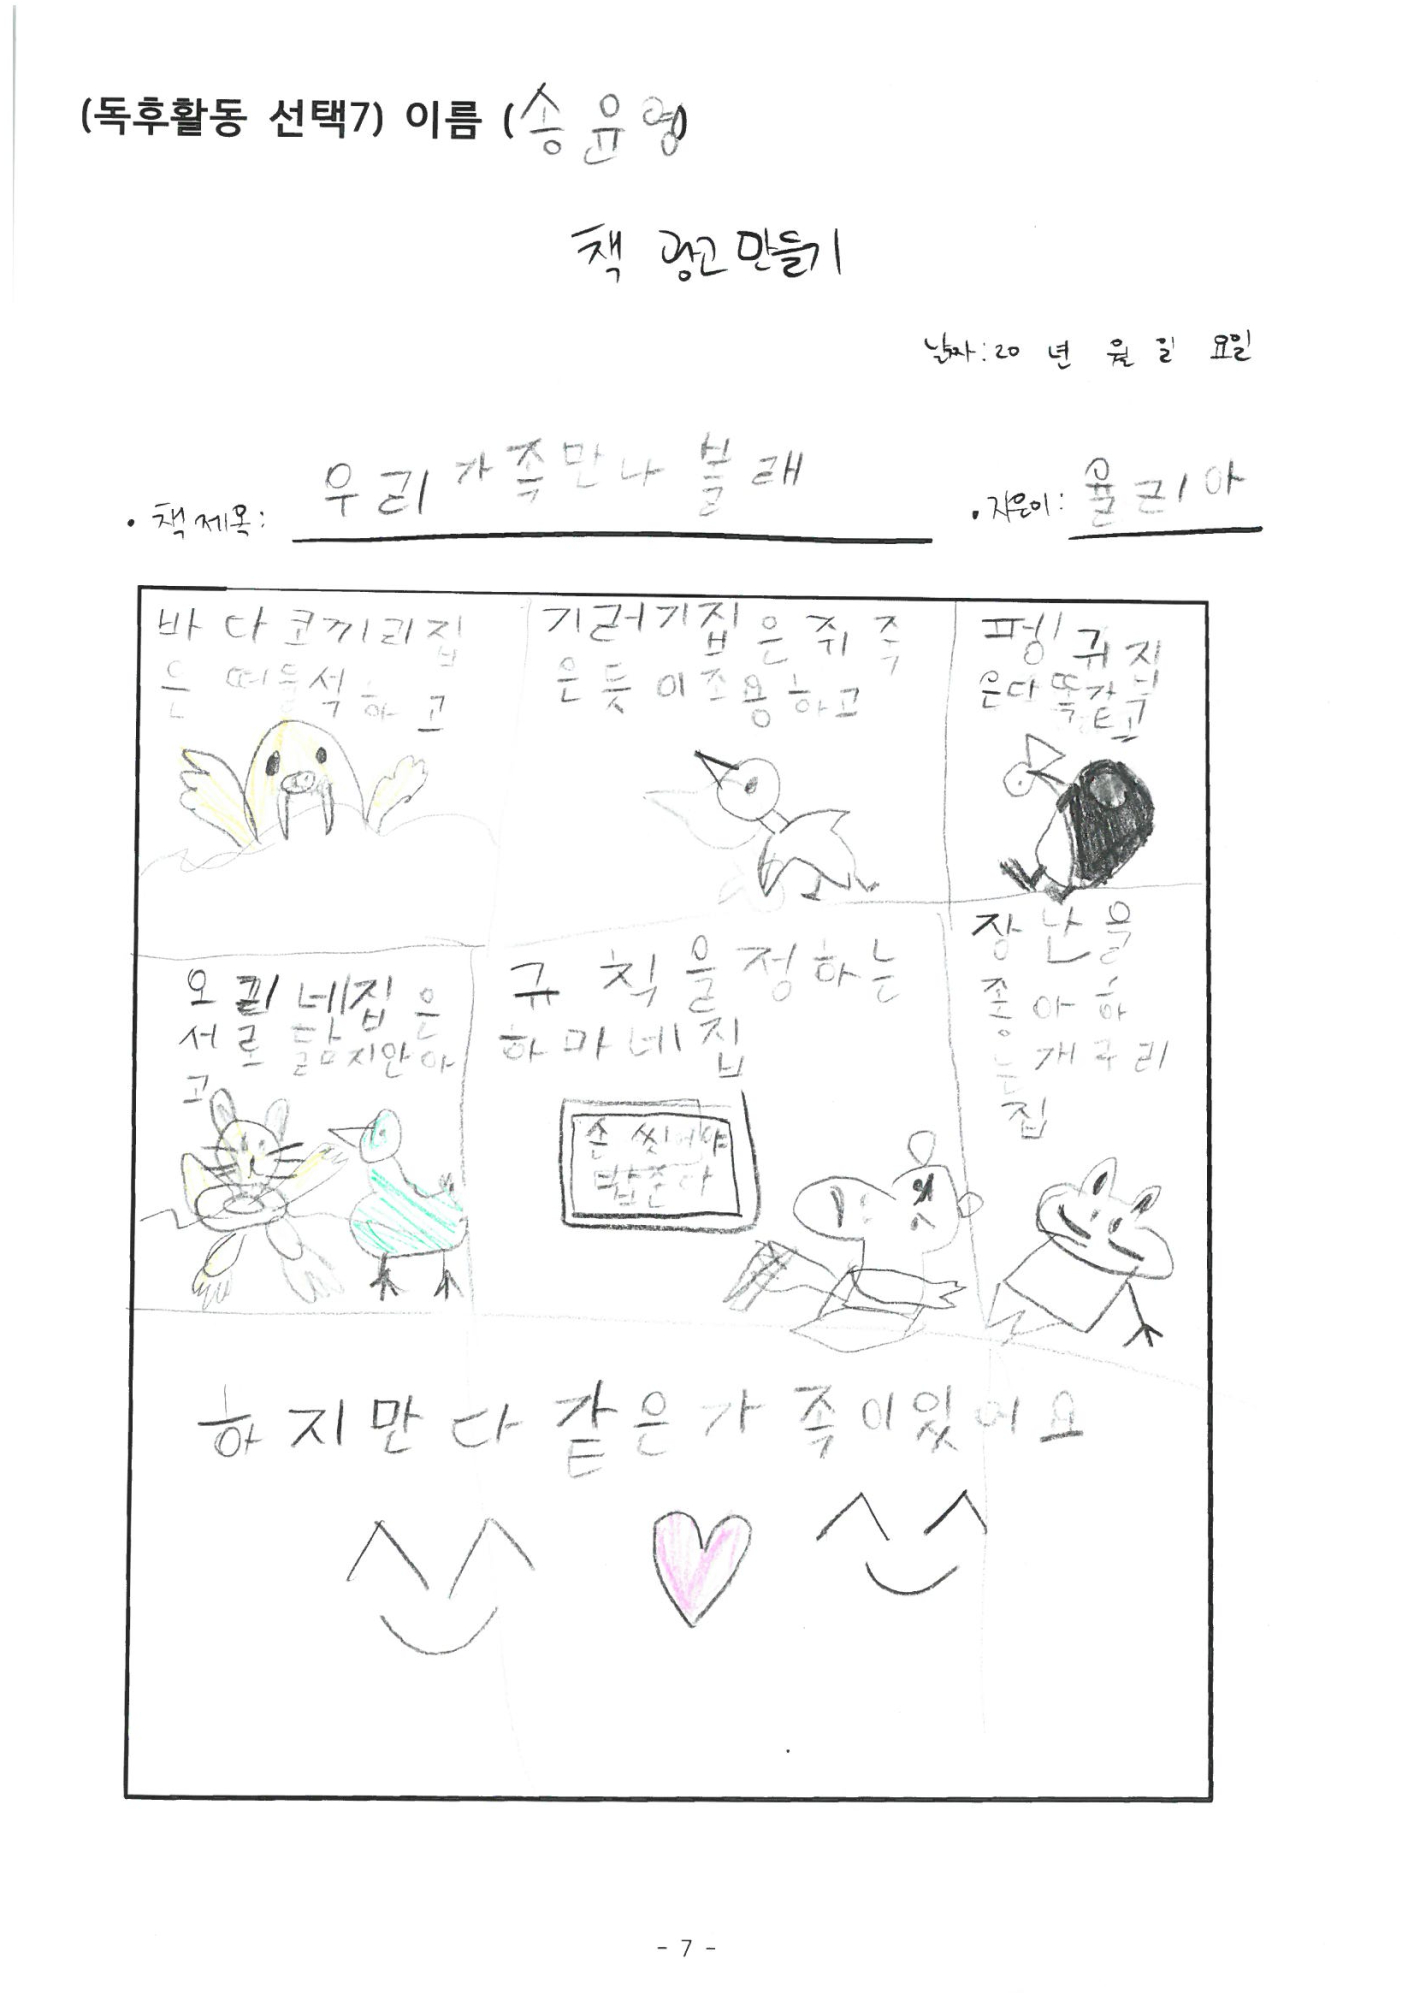 (독후활동 선택7) 이름 (송윤영)
책 광고 만들기
날짜: 20 년 월 일 요일
• 책 제목: 우리가족만나볼래
• 지은이: 율리아
바다코끼리집
은 떠들석하고
기러기집은쥐죽
은듯이조용하고
펭귄집
은다똑같고
오리네집은
서로 닮지안아
고
규칙을정하는
하마네집
손 씻어야
밥준다
장난을
좋아하
는개구리
집
하지만다같은가족이있어요
- 7 -